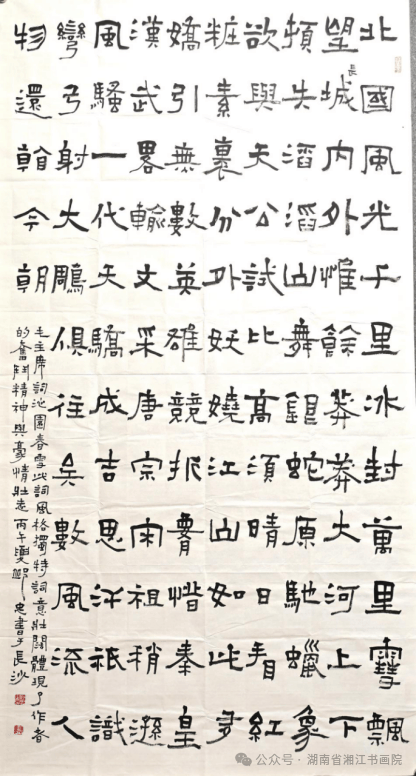 北國風光千里冰封萬里雪飄
望長城内外惟餘莽莽大河上下
頓失滔滔山舞銀蛇原馳蠟象
欲與天公試比高須晴日看紅
粧素裹分外妖嬈江山如此多
嬌引無數英雄競折腰惜秦皇
漢武畧輸文采唐宗宋祖稍遜
風騷一代天驕成吉思汗祇識
彎弓射大鵰俱往矣數風流人
物還看今朝
毛主席詞沁園春雪此詞風格獨特詞意壯闊體現了作者
的奮鬥精神與豪情壯志丙午忠書于長沙
公众号·湖南省湘江书画院